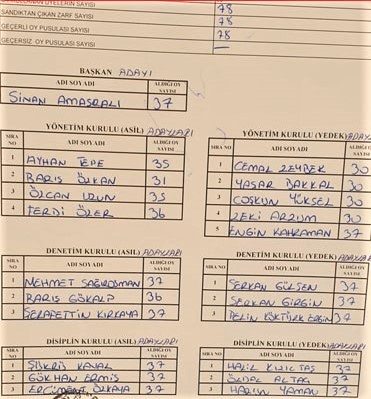 SANDIKTAN ÇIKAN ZARF SAYISI 78
GEÇERLİ OY PUSULASI SAYISI 78
GEÇERSİZ OY PUSULASI SAYISI —
BAŞKAN ADAYI
ADI SOYADI ALDIĞI OY SAYISI
SİNAN AMASRALI 37
YÖNETİM KURULU (ASİL) ADAYLARI
SIRA NO ADI SOYADI ALDIĞI OY SAYISI
1 AYHAN TEPE 35
2 BARIŞ ÖZKAN 31
3 ÖZCAN UZUN 35
4 FERDİ ÖZER 36
YÖNETİM KURULU (YEDEK)
SIRA NO ADI SOYADI ALDIĞI OY SAYISI
1 CEMAL ZEYBEK 30
2 YAŞAR BAKKAL 30
3 COŞKUN YÜKSEL 30
4 ZEKİ 30
5 ENGİN KAHRAMAN 37
DENETİM KURULU (ASİL) ADAYLARI
SIRA NO ADI SOYADI ALDIĞI OY SAYISI
1 MEHMET SAĞIROSMAN 37
2 BARIŞ GÖKALP 36
3 ŞERAFETTİN KIRKAYA 37
DENETİM KURULU (YEDEK)
SIRA NO ADI SOYADI ALDIĞI OY SAYISI
1 SERKAN GÜLŞEN 37
2 SERKAN GİRGİN 37
3 PELİN KÖKTÜRK ERGİN 37
DİSİPLİN KURULU (ASİL) ADAYLARI
SIRA NO ADI SOYADI ALDIĞI OY SAYISI
1 ŞÜKRÜ 37
2 GÖKHAN ERMİŞ 37
3 ÖZKAYA 37
DİSİPLİN KURULU (YEDEK) ADAYLARI
SIRA NO ADI SOYADI ALDIĞI OY SAYISI
1 HALİL 37
2 ALTAŞ 37
3 YAMAN 37